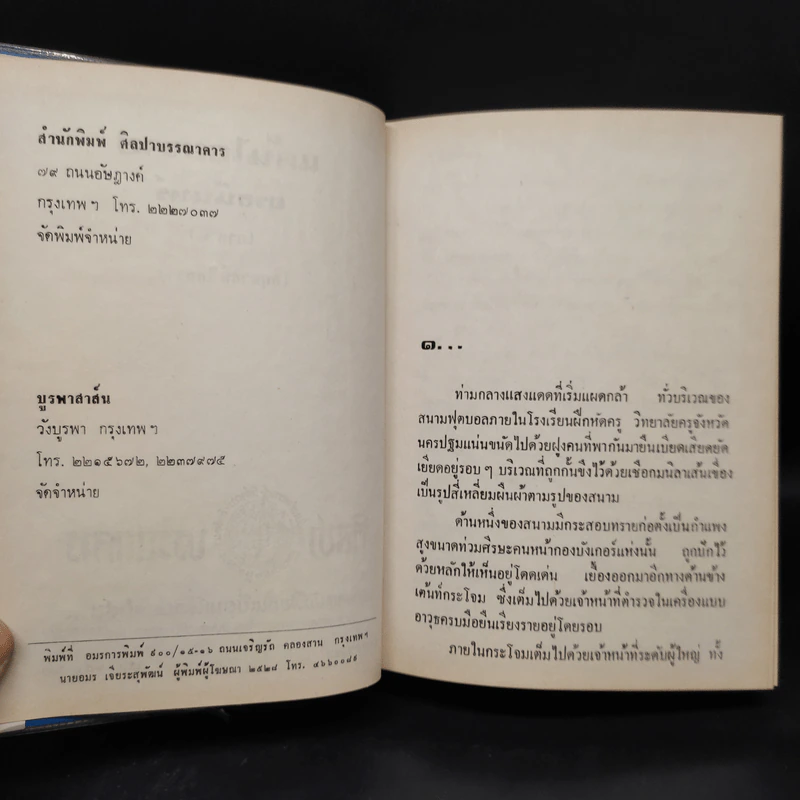 สำนักพิมพ์ ศิลปาบรรณาคาร
๗๙ ถนนอัษฎางค์
กรุงเทพฯ โทร. ๒๒๒๗๐๓๗
จัดพิมพ์จำหน่าย
บูรพาสาส์น
วังบูรพา กรุงเทพฯ
โทร. ๒๒๑๕๖๗๒, ๒๒๓๗๙๗๕
จัดจำหน่าย
พิมพ์ที่ อมรการพิมพ์ ๙๐๐/๑๕-๑๖ ถนนเจริญรัถ คลองสาน กรุงเทพฯ
นายอมร เจียระสุพัฒน์ ผู้พิมพ์ผู้โฆษณา ๒๕๒๘ โทร. ๔๖๖๐๐๘๙
๑...
ท่ามกลางแสงแดดที่เริ่มแผดกล้า ทั่วบริเวณของ
สนามฟุตบอลภายในโรงเรียนฝึกหัดครู วิทยาลัยครูจังหวัด
นครปฐมแน่นขนัดไปด้วยฝูงคนที่พากันมายืนเบียดเสียดยัด
เยียดอยู่รอบ ๆ บริเวณที่ถูกกั้นขึงไว้ด้วยเชือกมนิลาเส้นเขื่อง
เป็นรูปสี่เหลี่ยมผืนผ้าตามรูปของสนาม
ด้านหนึ่งของสนามมีกระสอบทรายก่อตั้งเป็นกำแพง
สูงขนาดท่วมศีรษะคนหน้ากองบังเกอร์แห่งนั้น ถูกปักไว้
ด้วยหลักให้เห็นอยู่โดดเด่น เยื้องออกมาอีกทางด้านข้าง
เต้นท์กระโจม ซึ่งเต็มไปด้วยเจ้าหน้าที่ตำรวจในเครื่องแบบ
อาวุธครบมือยืนเรียงรายอยู่โดยรอบ
ภายในกระโจมเต็มไปด้วยเจ้าหน้าที่ระดับผู้ใหญ่ ทั้ง